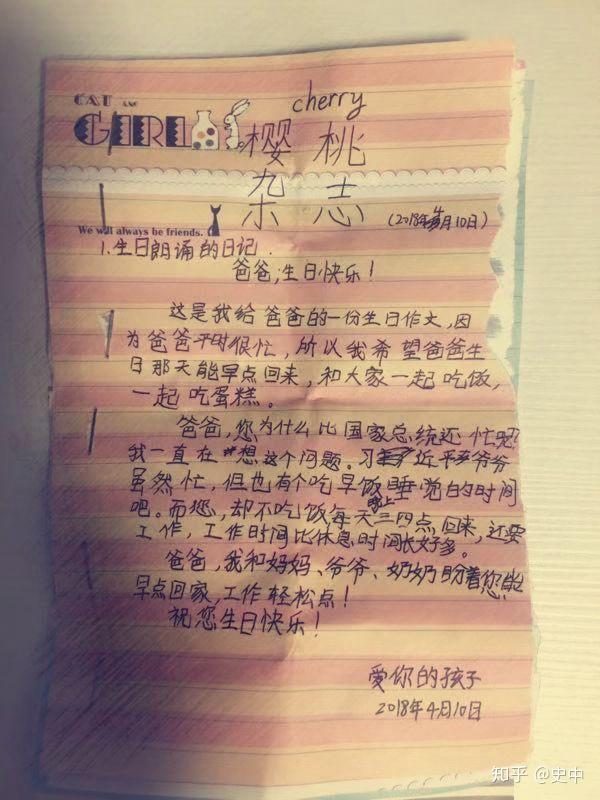 cherry
CAT AND
GIRL
樱桃
杂志
(2018年4月10日)
We will always be friends.
1.生日朗诵的日记.
爸爸,生日快乐!
这是我给爸爸的一份生日作文,因
为爸爸平时很忙,所以我希望爸爸生
日那天能早点回来,和大家一起吃饭,
一起吃蛋糕。
爸爸,您为什么比国家总统还忙呢?
我一直在想这个问题。习近平爷爷
虽然忙,但也有个吃早饭睡觉的时间
吧。而您,却不吃饭每天晚上三四点回来,还要
工作,工作时间比休息时间长好多。
爸爸,我和妈妈、爷爷、奶奶盼着您能
早点回家,工作轻松点!
祝您生日快乐!
爱你的孩子
2018年4月10日
知乎 @史中